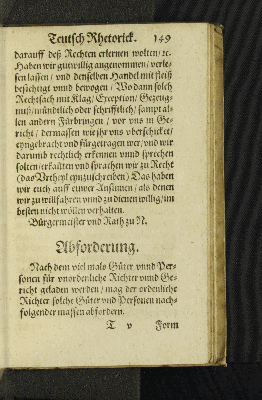 Teutsch Rhetorick. 149
darauff deß Rechten erlernen wolten / ꝛc.
Haben wir gutwillig angenommen / verle-
sen lassen / und denselben Handel mit fleiß
besichtigt vnnd bewogen / Wo dann solch
Rechtsach mit Klag / Exception / Gezeug-
nuß / mündlich oder schrifftlich / sampt al-
len andern Fürbringen / vor vns in Ge-
richt / dermassen wie jhr vns vberschicket /
eyngebracht vnd fürgetragen wer / vnd wir
darumb rechtlich erkennen vnnd sprechen
solten / erkañten vnd sprachen wir zu Recht
(das Vrtheyl eynzuschreiben) Das haben
wir euch auff euwer Ansinnen / als denen
wir zu willfahren vnnd zu dienen willig / im
besten nicht wöllen verhalten.
Bürgermeister vnd Rath zu N.
Abforderung.
Nach dem viel mals Güter vnnd Per-
sonen für vnordenliche Richter vnnd Ge-
richt geladen werden / mag der ordenliche
Richter solche Güter vnd Personen nach-
folgender massen abfordern.
T v Form